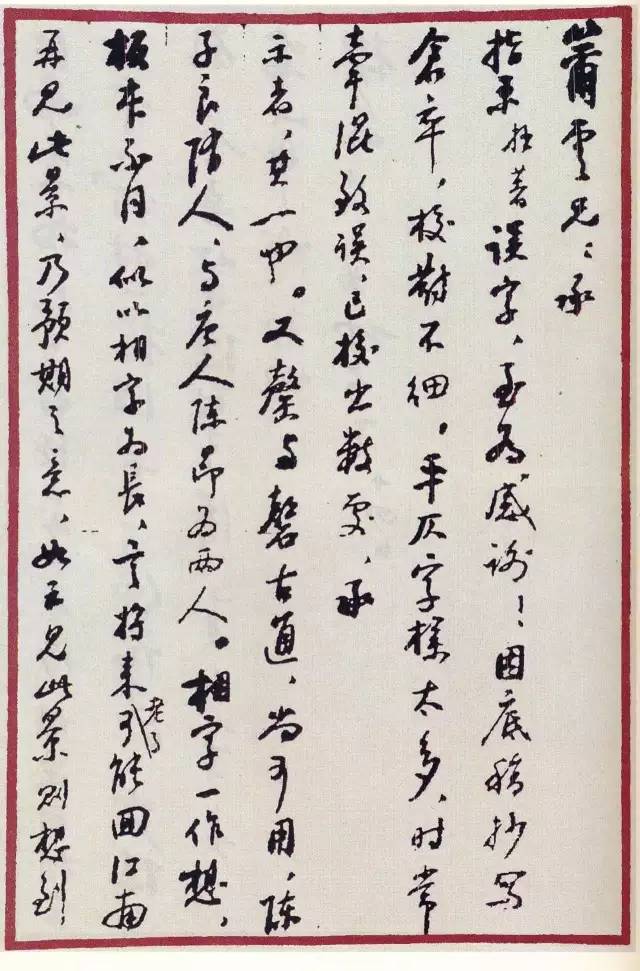 雲兄：承
指示拙著误字，至为感谢！因底稿抄写
仓卒，校對不细，平仄字樣太多，时常
牽混致误，已校出数处，承
示者，其一也。又罄与磬古通，尚可用，陈
子良隋人，与唐人陈昂为两人。相字一作想，
板本不同，似以相字为長，言将来可能回江南
再见此景，乃预期之意，如云见此景则想到，